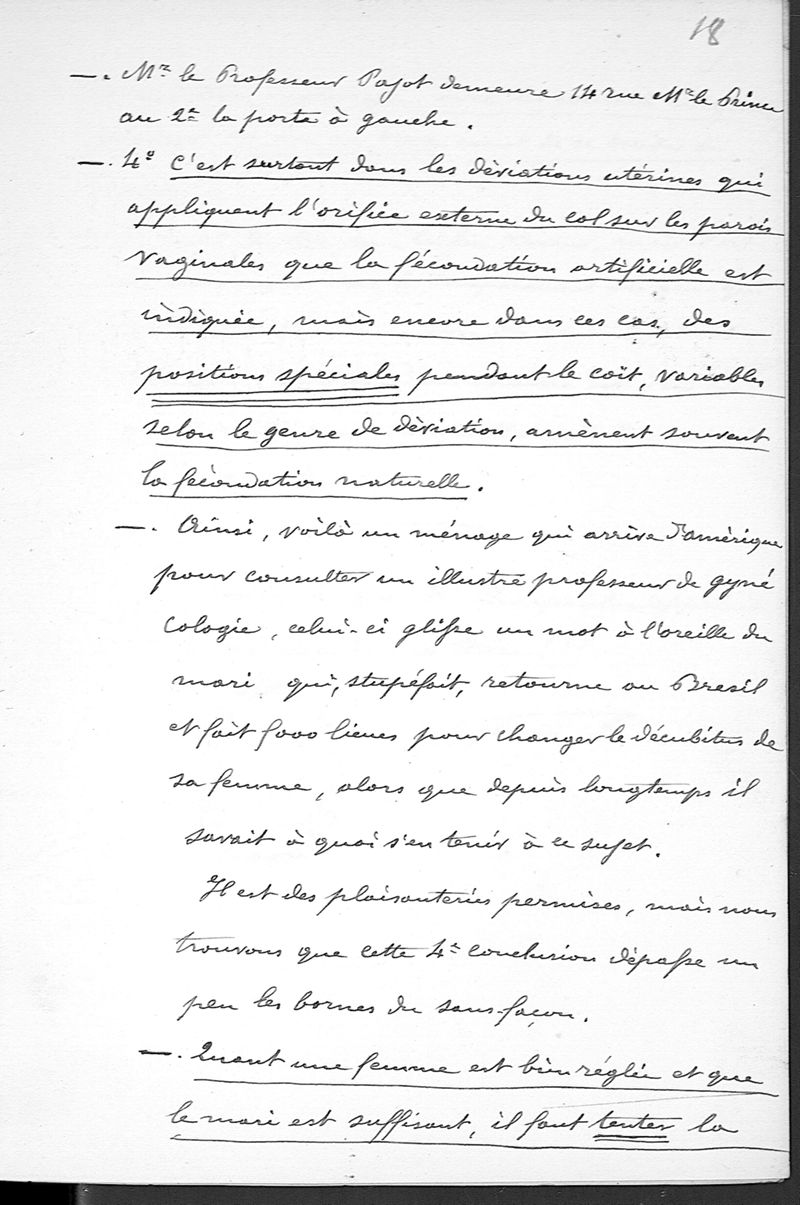 18
—. Mr le Professeur Pajot demeure 14 rue Mr le Prince
au 2e la porte à gauche.
—. 4o C'est surtout dans les déviations utérines qui
appliquent l'orifice externe du col sur les parois
vaginales que la fécondation artificielle est
indiquée, mais encore dans ces cas, des
positions spéciales pendant le coït, variables
selon le genre de déviation, amènent souvent
la fécondation naturelle.
—. Ainsi, voilà un ménage qui arrive d'amérique
pour consulter un illustre professeur de gyné
cologie, celui-ci glisse un mot à l'oreille du
mari qui, stupéfait, retourne au Bresil
et fait 5000 lieues pour changer le décubitus de
sa femme, alors que depuis longtemps il
savait à quoi s'en tenir à ce sujet.
Il est des plaisanteries permises, mais nous
trouvons que cette 4e conclusion dépasse un
peu les bornes du sans-façon.
—. Quant une femme est bien réglée et que
le mari est suffisant, il faut tenter la